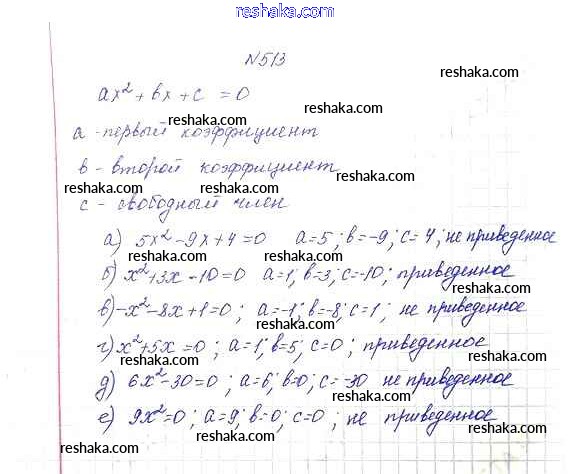 reshaka.com
N513
reshaka.com
ax² + bx + c = 0
reshaka.com reshaka.com
a - первый коэффициент
reshaka.com
b - второй коэффициент
reshaka.com reshaka.com
c - свободный член
reshaka.com
а) 5x² - 9x + 4 = 0 a = 5; b = -9; c = 4; не приведенное
reshaka.com reshaka.com
б) x² + 3x - 10 = 0 a = 1; b = 3; c = -10; приведенное
reshaka.com reshaka.com
в) -x² - 8x + 1 = 0; a = -1; b = -8; c = 1; не приведенное
reshaka.com reshaka.com
г) x² + 5x = 0; a = 1; b = 5; c = 0; приведенное
reshaka.com reshaka.com
д) 6x² - 30 = 0; a = 6; b = 0; c = -30 не приведенное
reshaka.com reshaka.com
е) 9x² = 0; a = 9; b = 0; c = 0; не приведенное
reshaka.com
reshaka.com